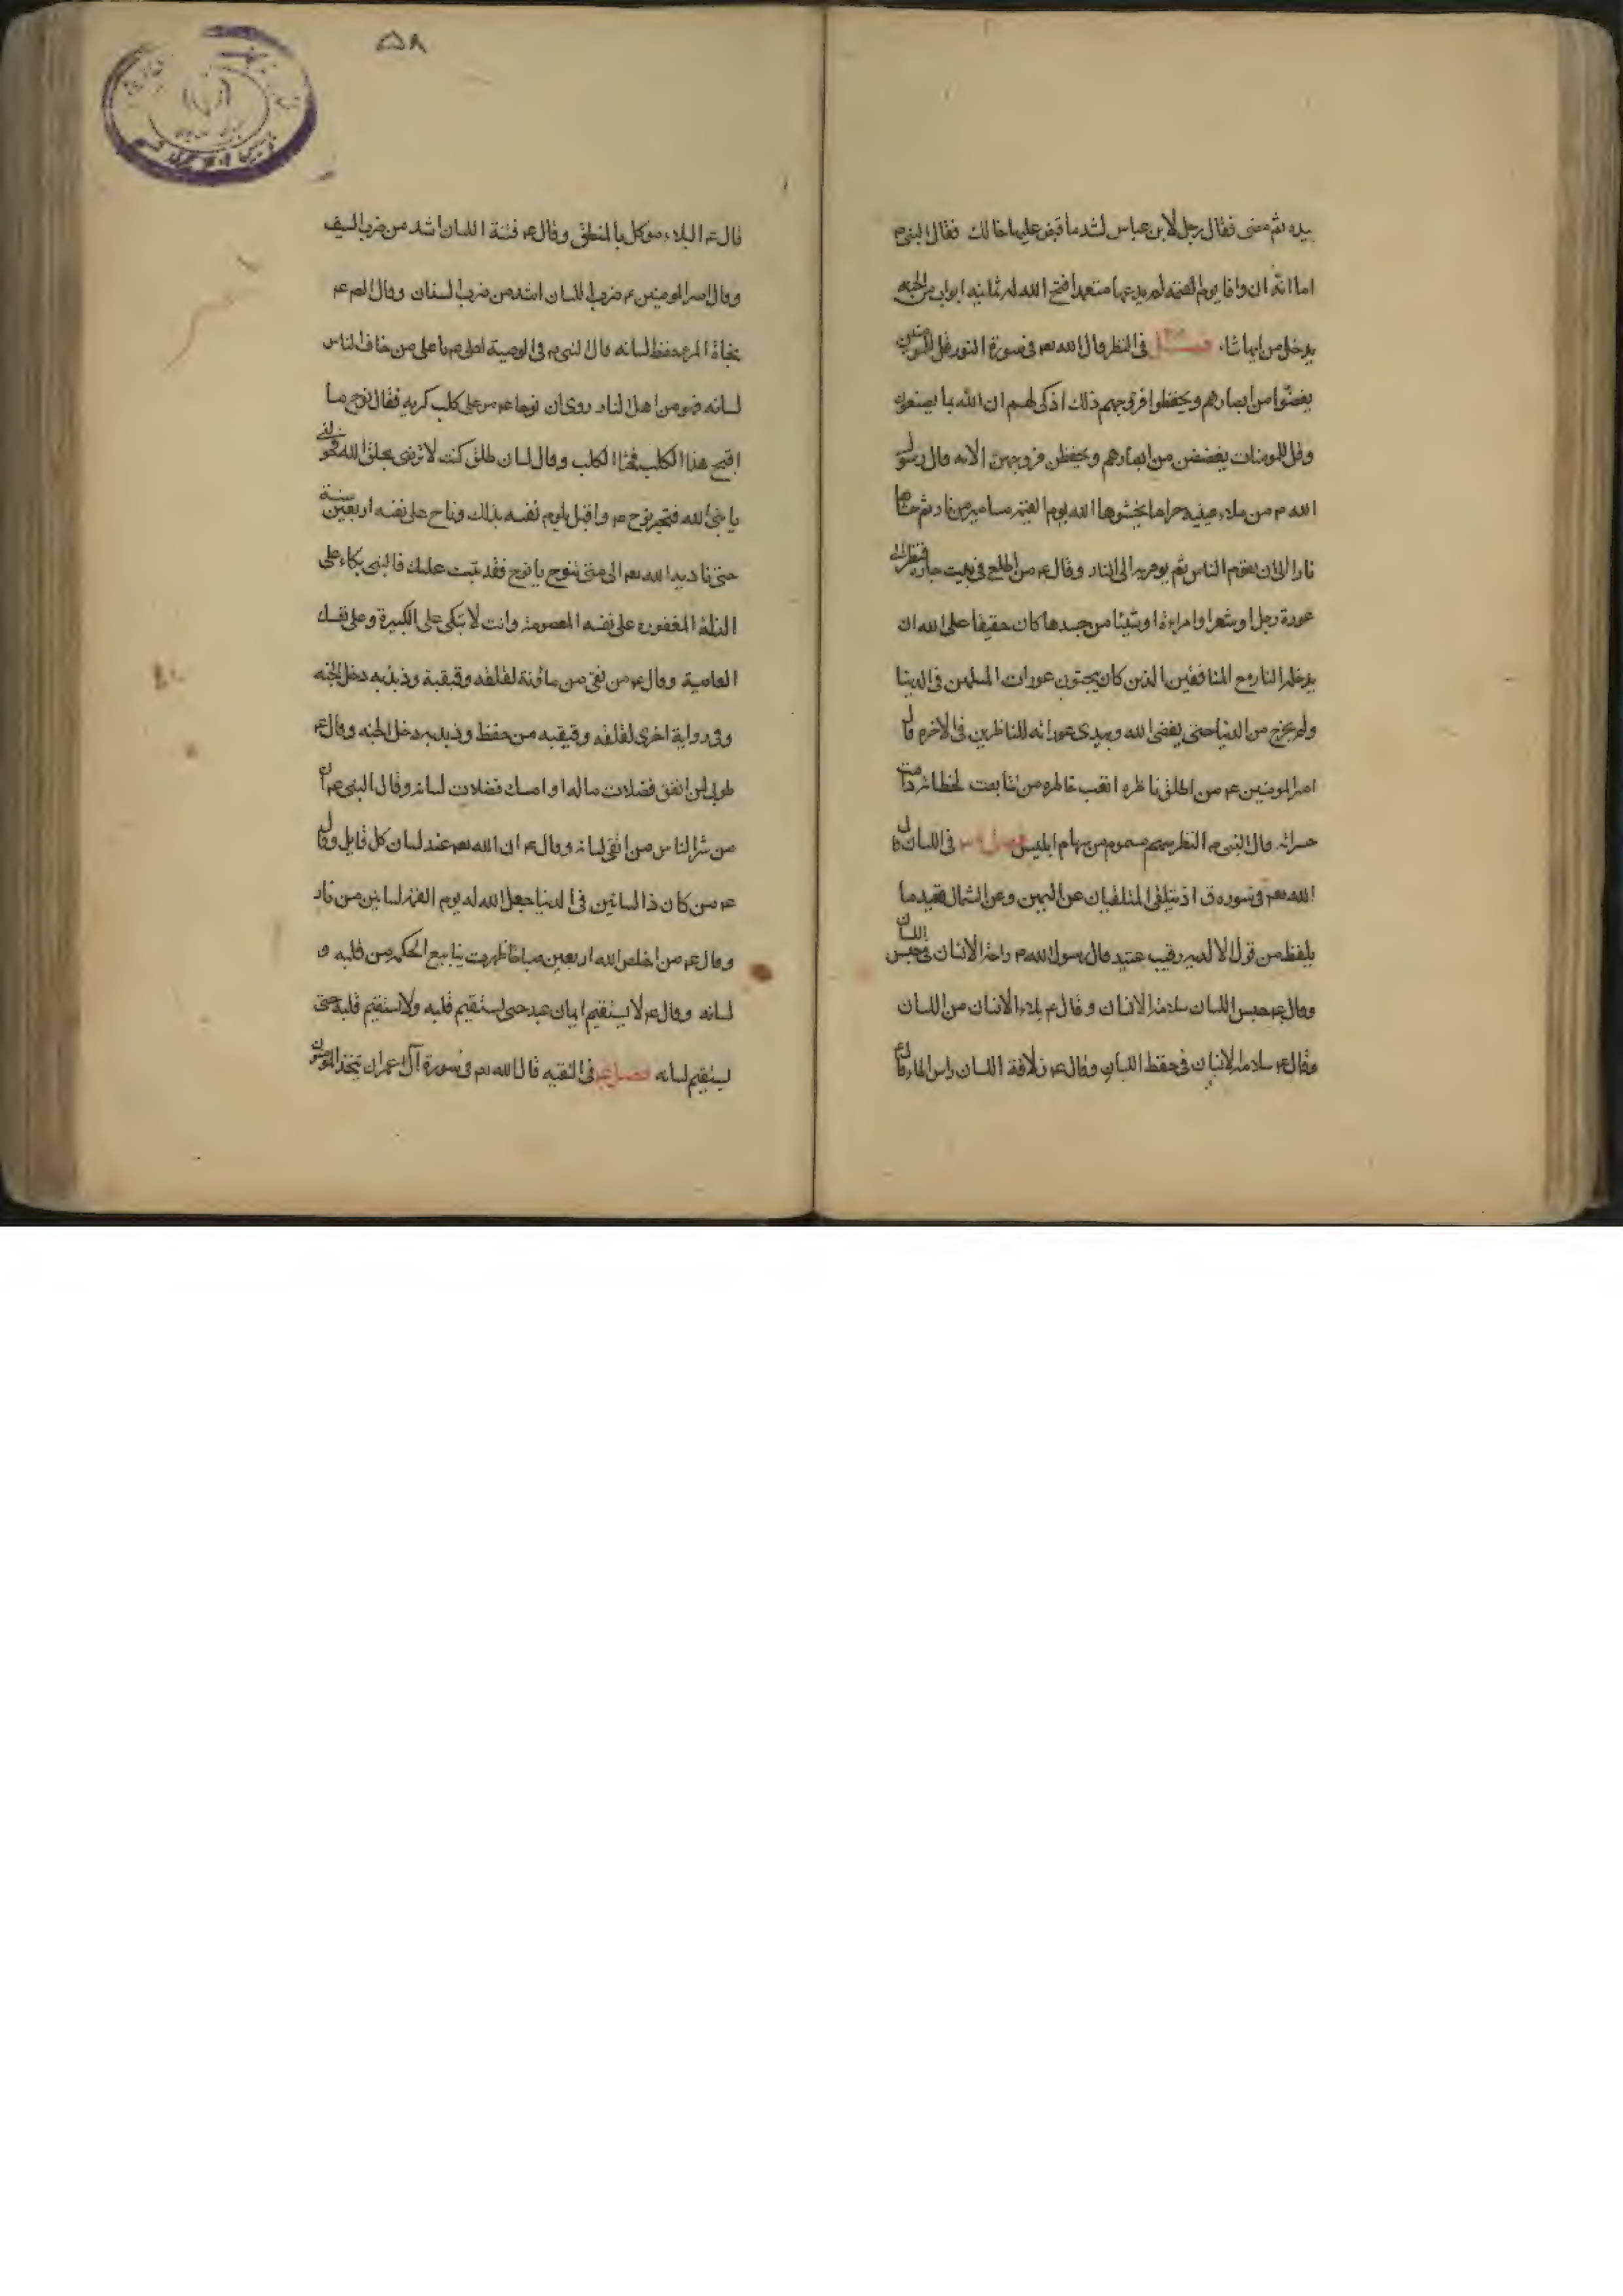 بيده ثم مضى فقال رجل لابن عباس لشد ما قبض عليها خالك فقال النبي م
اما انه ان وافا يوم القيمة لم يدعها متعمدا فتح الله له ثمانية ابواب من الجنه
يدخل من ايها شاء فصل في النظر قال الله تعه في سورة النور قل للمومنين
يغضوا من ابصارهم ويحفظوا فروجهم ذلك ازكى لهم ان الله بما يصنعون
وقل للمومنات يغضضن من ابصارهم ويحفظن فروجهن الايه قال رسول
الله م من ملاء عينيه حراما يحشوها الله يوم القيمة مسامير من نار ثم حشاها
نارا الى ان يقوم الناس ثم يومر به الى النار وقال عم من اطلع في بيت جاره فنظر الى
عورة رجل او شعر امراءة او شيئا من جسدها كان حقيقا على الله ان
يدخله النار مع المنافقين الذين كان يبحثون عورات المسلمين في الدنيا
ولم يخرج من الدنيا حتى يفضى الله ويبدى عوراته للناظرين في الاخره قال
امير المومنين عم من اطلق ناظره اتعب خاطره من تتابعت لحظاته دامت
حسراته قال النبي م النظر سهم مسموم من سهام ابليس فصل في اللسان قال
الله تعه في سوره ق اذ يتلقى المتلقيان عن اليمين وعن الشمال قعيد ما
يلفظ من قول الا لديه رقيب عتيد قال رسول الله م راحة الانسان في حبس اللسان
وقال عم حبس اللسان سلامة الانسان وقال عم بلاء الانسان من اللسان
وقال عم سلامة الانسان في حفظ اللسان وقال عم زلاقة اللسان راس المال وقال
۵۸
قال عم البلاء موكل بالمنطق وقال عم فتنة اللسان اشد من ضرب السيف
وقال امير المومنين عم ضرب اللسان اشد من ضرب السنان وقال لهم عم
نجاة المرء حفظ لسانه قال النبي م في الوصية لعلي عم يا علي من خاف الناس
لسانه فهو من اهل النار روى ان نوحا عم مر على كلب كريه فقال نوح ما
اقبح هذا الكلب فجثا الكلب وقال لسان طلق كنت لا ترضى بخلق الله فحولني
يا نبي الله فتحير نوح عم واقبل يلوم نفسه بذلك وناح على نفسه اربعين سنة
حتى ناديه الله تعه الى متى ينوح يا نوح فقد تبت عليك فالنبي بكاء على
الذلة المغفوره على نفسه المعصومة وانت لا تبكى على الكبيرة وعلى نفسك
العاصية وقال عم من نقى من مائونة لقلقه وقبقبة وذبذبه دخل الجنه
وفي رواية اخرى لقلقه وقبقبه من حفظ وذبذبه دخل الجنه وقال عم
طوبى لمن انفق فضلات ماله او امسك فضلات لسانه وقال النبي عم ان
من شر الناس من اتقى لسانه وقال عم ان الله تعه عند لسان كل قايل وقال
عم من كان ذا لسانين في الدنيا جعل الله له يوم القيمة لسانين من نار
وقال عم من اخلص الله اربعين صباحا ظهرت ينابيع الحكمه من قلبه و
لسانه وقال عم لا يستقيم ايمان عبد حتى يستقيم قلبه ولا يستقيم قلبه حتى
يستقيم لسانه فصل في التقيه قال الله تعه في سورة آل عمران يتخذ المومنون